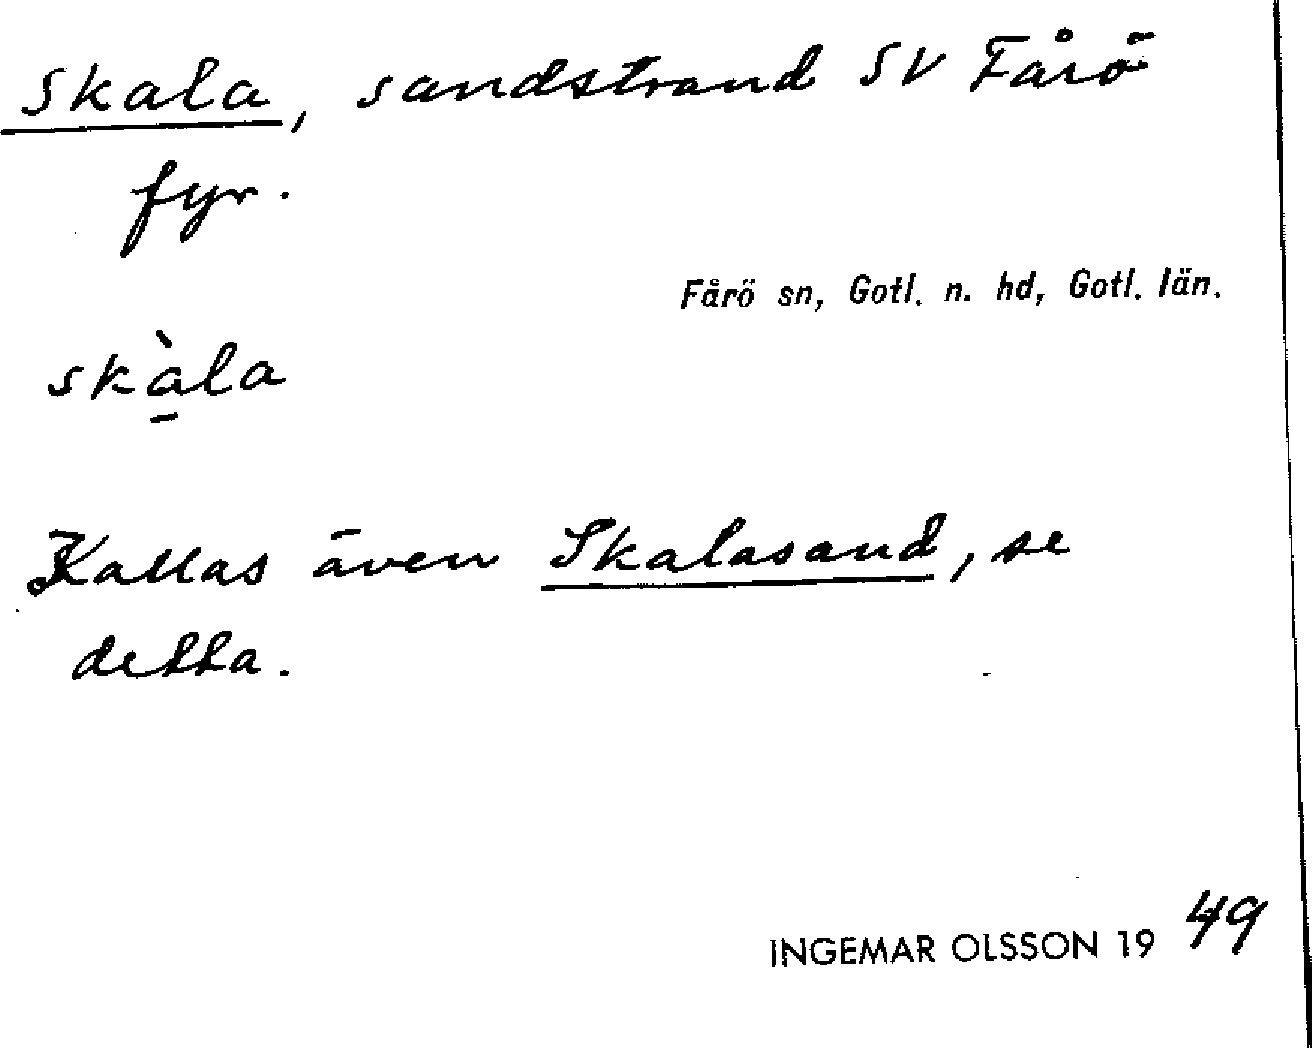 Skala, sandstrand SV Fårö
fyr.
Fårö sn, Gotl. n. hd, Gotl. län.
skà̱la
Kallas även Skalasand, se
detta.
INGEMAR OLSSON 1949